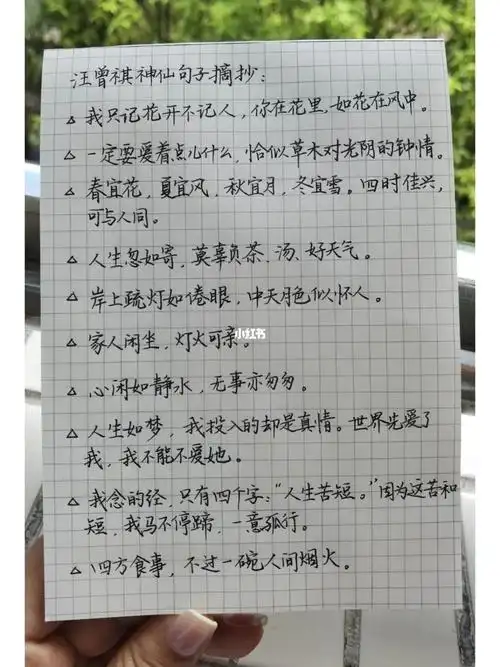 汪曾祺神仙句子摘抄：
△ 我只记花开不记人，你在花里，如花在风中。
△ 一定要爱着点儿什么，恰似草木对光阴的钟情。
△ 春宜花，夏宜风，秋宜月，冬宜雪。四时佳兴，
可与人同。
△ 人生忽如寄，莫辜负茶、汤、好天气。
△ 岸上疏灯如倦眼，中天月色似怀人。
小红书
△ 家人闲坐，灯火可亲。
△ 心闲如静水，无事亦匆匆。
△ 人生如梦，我投入的却是真情。世界先爱了
我，我不能不爱她。
△ 我念的经，只有四个字：“人生苦短。”因为这苦和
短，我马不停蹄，一意孤行。
△ 四方食事，不过一碗人间烟火。